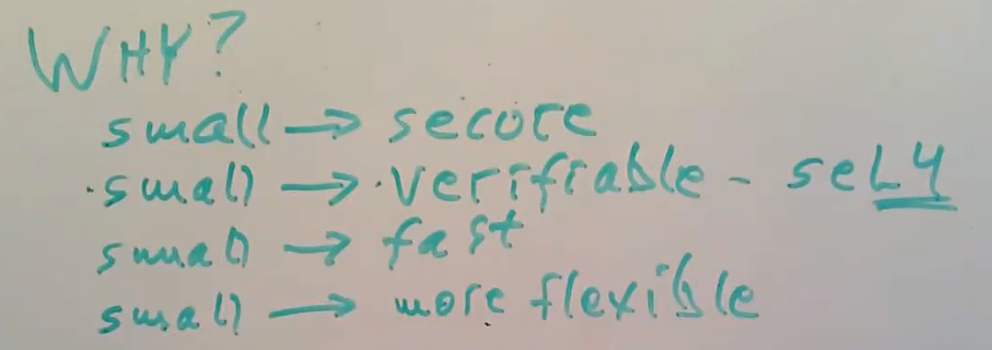 WHY?
small → secure
small → verifiable - seL4
small → fast
small → more flexible